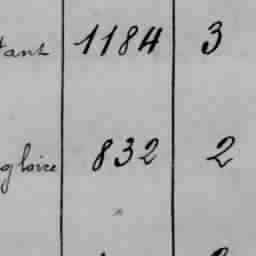 tant 1184 3
gloire 832 2